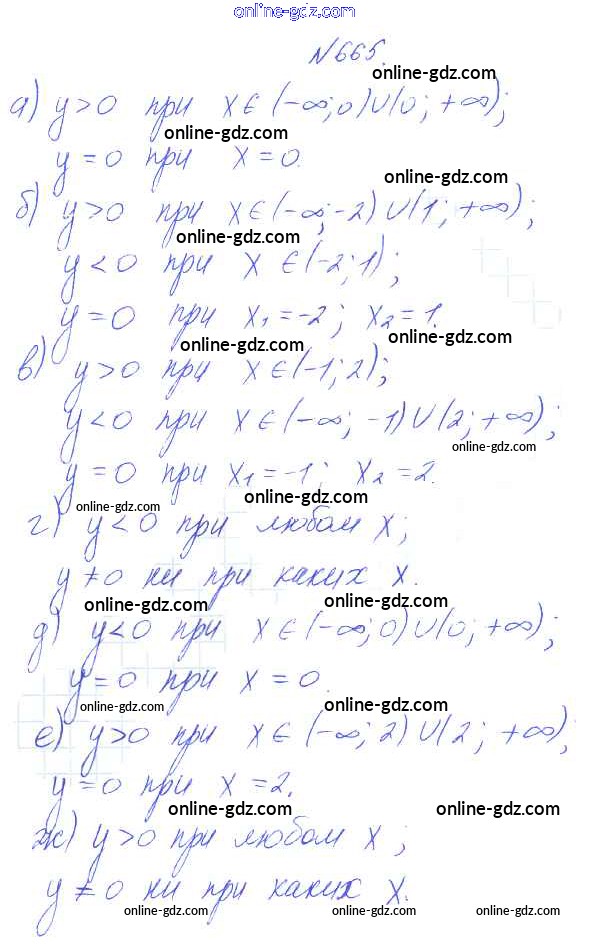 online-gdz.com
№665.
online-gdz.com
а) y>0 при x∈(-∞;0)∪(0;+∞);
online-gdz.com
y=0 при x=0.
online-gdz.com
б) y>0 при x∈(-∞;-2)∪(1;+∞);
online-gdz.com
y<0 при x∈(-2;1);
y=0 при x₁=-2; x₂=1.
online-gdz.com online-gdz.com
в) y>0 при x∈(-1;2);
y<0 при x∈(-∞;-1)∪(2;+∞);
online-gdz.com
y=0 при x₁=-1; x₂=2.
online-gdz.com online-gdz.com
г) y<0 при любом x;
y≠0 ни при каких x.
online-gdz.com online-gdz.com
д) y<0 при x∈(-∞;0)∪(0;+∞);
y=0 при x=0.
online-gdz.com online-gdz.com
е) y>0 при x∈(-∞;2)∪(2;+∞);
y=0 при x=2.
online-gdz.com online-gdz.com
ж) y>0 при любом x;
y≠0 ни при каких x.
online-gdz.com online-gdz.com online-gdz.com